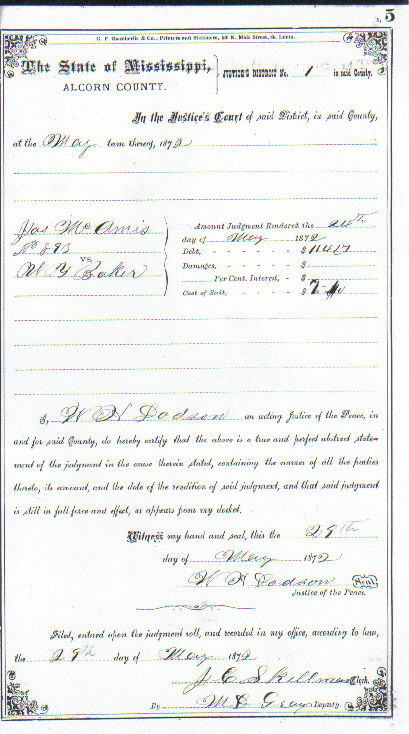 5
C. F. Chamberlin & Co., Printers and Stationers, Main Street, St. Louis.
The State of Mississippi,
ALCORN COUNTY.
JUSTICE'S DISTRICT No. 1 in said County.
In the Justice's Court of said District, in said County,
at the May term thereof, 1872
Jas McAmis
No 893
vs.
Baker
Amount Judgment Rendered the
day of May 1872
Debt, - - - - - $
Damages, - - - - - $
Per Cent. Interest, - $
Cost of Suit, - - - - $
I, W H Dodson an acting Justice of the Peace, in
and for said County, do hereby certify that the above is a true and perfect abstract state-
ment of the judgment in the cause therein stated, containing the names of all the parties
thereto, its amount, and the date of the rendition of said judgment, and that said judgment
is still in full force and effect, as appears from my docket.
Witness my hand and seal, this the 29th
day of May 1872
W H Dodson Seal
Justice of the Peace
Filed, entered upon the judgment roll, and recorded in my office, according to law,
the 29th day of May 1872
J. C. Skillman Clerk.
By M C Gray Deputy.